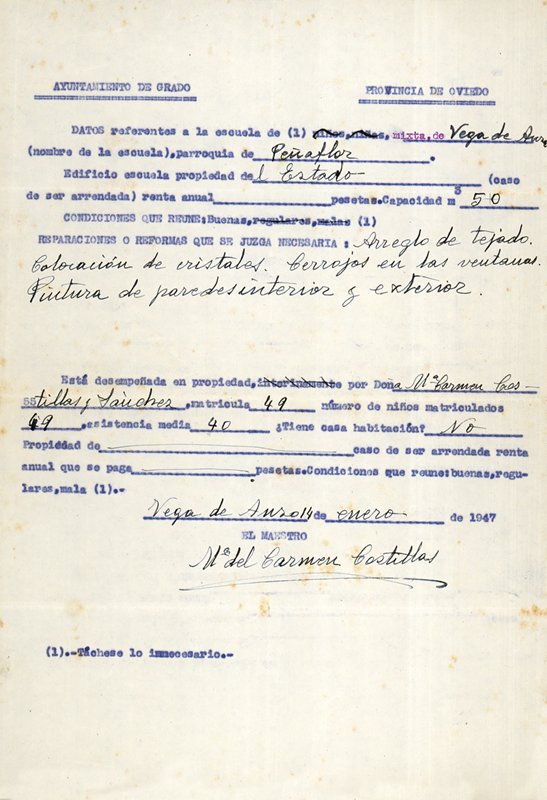 AYUNTAMIENTO DE GRADO PROVINCIA DE OVIEDO
DATOS referentes a la escuela de (1) niños, niñas, mixta, de Vega de Anzo
(nombre de la escuela), parroquia de Peñaflor.
Edificio escuela propiedad del Estado (caso
de ser arrendada) renta anual pesetas. Capacidad m3 50
CONDICIONES QUE REUNE: Buenas, regulares, malas (1)
REPARACIONES O REFORMAS QUE SE JUZGA NECESARIA: Arreglo de tejado.
Colocación de cristales. Cerrojos en las ventanas.
Pintura de paredes interior y exterior.
Está desempeñada en propiedad, interinamente por Doña Mª Carmen Cos-
tillas y Sánchez, matricula 49 número de niños matriculados
49, asistencia media 40 ¿Tiene casa habitación? No
Propiedad de caso de ser arrendada renta
anual que se paga pesetas. Condiciones que reune: buenas, regu-
lares, mala (1).-
Vega de Anzo 14 de enero de 1947
EL MAESTRO
Mª del Carmen Costillas
(1).-Táchese lo innecesario.-